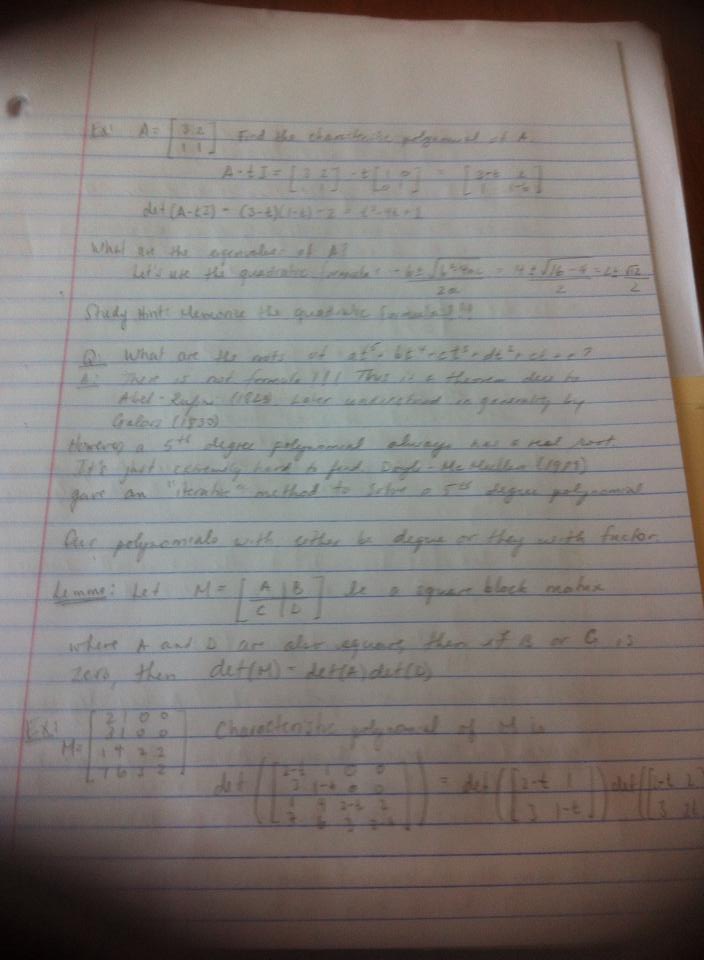 Ex: A = [3 2; 1 1] Find the characteristic polynomial of A.
A - tI = [3 2; 1 1] - t[1 0; 0 1] = [3-t 2; 1 1-t]
det(A-tI) = (3-t)(1-t) - 2 = t²-4t+1
What are the eigenvalues of A?
Let's use the quadratic formula: -b ± √(b²-4ac) / 2a = 4 ± √(16-4) / 2 = ± √12 / 2
Study Hint: Memorize the quadratic formula!!!!
Q: What are the roots of at⁵ + bt⁴ + ct³ + dt² + ?
A: There is not formula!!! Thus is a theorem due to
Abel - Later understood in generality by
Galois (1830)
However a 5th degree polynomial always has a real root.
It's just extremely hard to find. Doyle - McMullen
gave an "iterative" method to solve a 5th degree polynomial
Our polynomials with either be degree or they with factor.
Lemma: Let M = [A B; C D] be a square block matrix
where A and D are also square, then if B or C is
zero, then det(M) = det(A)det(D)
Ex: M = [2 1 0 0; 3 1 0 0; 1 4 2 2; 7 6 3 2] Characteristic polynomial of M is
det([2-t 1 0 0; 3 1-t 0 0; 1 4 2-t 2; 7 6 3 ]) = det([2-t 1; 3 1-t]) det([ 2; 3